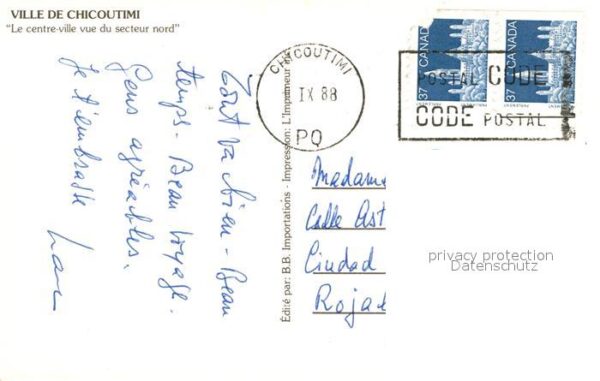 VILLE DE CHICOUTIMI
"Le centre-ville vue du secteur nord"
Tout va bien - Beau
temps - Beau Voyage.
Gens agréables.
Je t'embrasse
Édité par: B.B. Importations - Impression: L'Imprimeur
CHICOUTIMI
IX 88
PQ
CANADA 37
CANADA 37
POSTAL CODE
CODE POSTAL
Madame
Calle Ast
Ciudad
Roja
privacy protection
Datenschutz